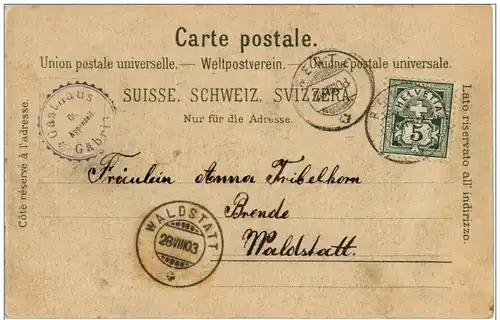 Carte postale.
Union postale universelle. — Weltpostverein. — Unione postale universale.
SUISSE. SCHWEIZ. SVIZZERA.
Nur für die Adresse.
Côté réservé à l'adresse.
Lato riservato all' indirizzo.
Gasthaus
Appenzell
Gäbris
HELVETIA
5
Fräulein Anna Tribelhorn
Brende
Waldstatt.
WALDSTATT
28VIII03